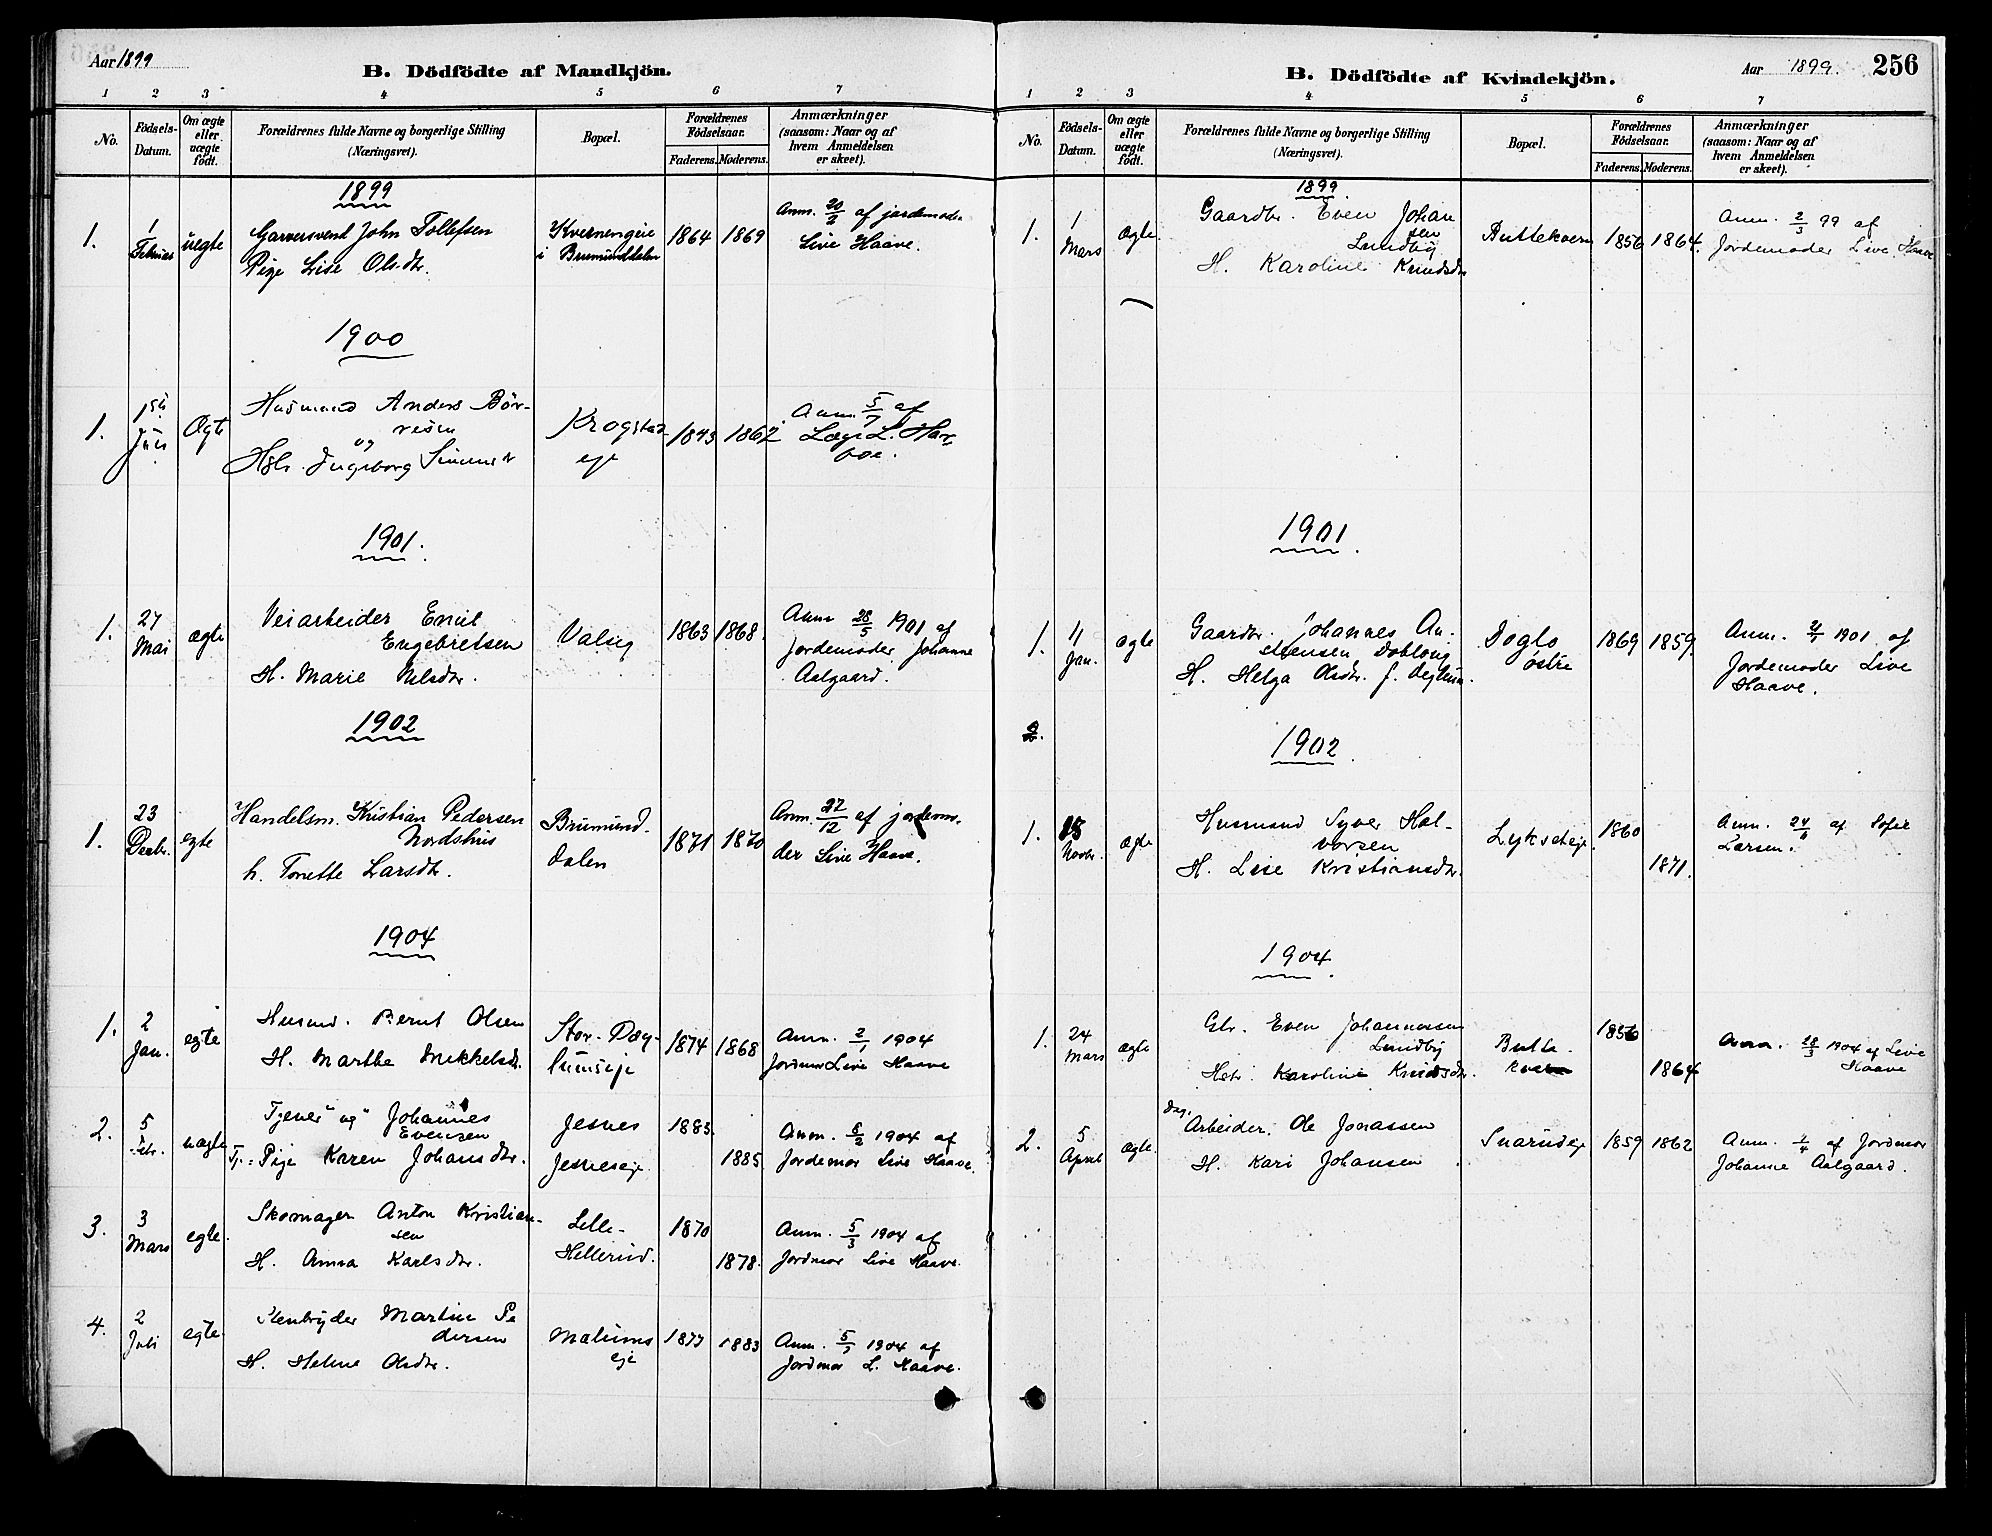 Aar 1899
B. Dödfödte af Mandkjön.
1 2 3 4 5 6 7
No.
Födsels-Datum.
Om ægte eller uægte födt.
Forældrenes fulde Navne og borgerlige Stilling
(Næringsvei).
Bopæl.
Forældrenes Födselsaar.
Faderens. Moderens.
Anmærkninger
(saasom: Naar og af
hvem Anmeldelsen
er skeet).
1899
1. 1 Februar uegte
Garversvend John Tollefsen
Pige Lise Olsdtr.
i Brumunddalen
1864 1869
Anm. 20/2 af jordemoder
Live Haave.
1900
1. 1ste Juli Ægte
Husmand Anders Bör-
resen
og
Ingeborg
Krogstad
eje
1843 1862
Anm. 5/7 af
Læge L. Har
boe.
1901.
1. 27 Mai ægte
Veiarbeider Emil
Engebretsen
H. Marie Nilsdtr.
Valsig
1863 1868.
Anm 28/5 1901 af
Jordemoder Johanne
Aalgaard.
1902
1. 23 Decbr. egte
Handelsm. Kristian Pedersen
Nordshus
h. Tonette Larsdtr.
Brumund-
dalen
1871 1870
Anm. 27/12 af jordemo-
der Live Haave.
1904
1. 2 Jan. egte
Husmd. Bernt Olsen
H. Marthe Mikkelsdtr.
Stor-Dæg-
lumseje
1874 1868
Anm. 2/1 1904
Jordmor Live Haave
2. 5 Febr. uægte
Tjener "og" Johannes
Evensen
Tj.= Pige Karen Johansdtr.
Jesnes
Jesneseje.
1883.
1885.
Anm. 6/2 1904 af
Jordemor Live Haave.
3. 3 Mars egte.
Skomager Anton Kristian-
sen
H. Anna Karlsdtr.
Lille-
Hellerud.
1870
1878.
Anm. 5/3 1904 af
Jordmor Live Haave.
4. 2 Juli egte.
Stenbryder Martin Pe
dersen
H. Helene Olsdtr.
Malums
eje
1877 1883
Anm. 5/7 1904 af
Jordmor L. Haave.
B. Dödfödte af Kvindekjön.
Aar 1899. 256
1 2 3 4 5 6 7
No.
Födsels-Datum.
Om ægte eller uægte födt.
Forældrenes fulde Navne og borgerlige Stilling
(Næringsvei).
Bopæl.
Forældrenes Födselsaar.
Faderens. Moderens.
Anmærkninger
(saasom: Naar og af
hvem Anmeldelsen
er skeet).
1899.
1. 1 Mars Ægte.
Gaardbr. Even Johan
sen
Lundby
H. Karoline Knudsdtr
Buttekvern
1856 1864.
Anm. 2/3 99 af
Jordemoder Live Haave
1901.
1. 11 Jan. ægte
Gaardbr. Johannes An-
dersen Doblong
H. Helga Olsdtr. f.
Doglo
östre
1869 1859.
Anm. 1901 af
Jordemoder Live
Haave.
2.
1902.
1. Novbr. ægte
Husmand Syver Hal-
vorsen
H. Lise Kristiansdtr.
Lykseteje.
1860
1871.
Anm. af Sofie
Larsen.
1904.
1. 24 Mars ægte
Gbr. Even Johannessen
Lundby
Hstr. Karoline Knudsdtr.
Butte-
kvern
1856
1864
Anm. 28/3 1904 af Live
Haave
2. 5 April ægte.
Dag.
Arbeider. Ole Jonassen
H. Kari Johansen
Snarudeje
1859 1862
Anm. 7/4 af Jordmor
Johanne Aalgaard.